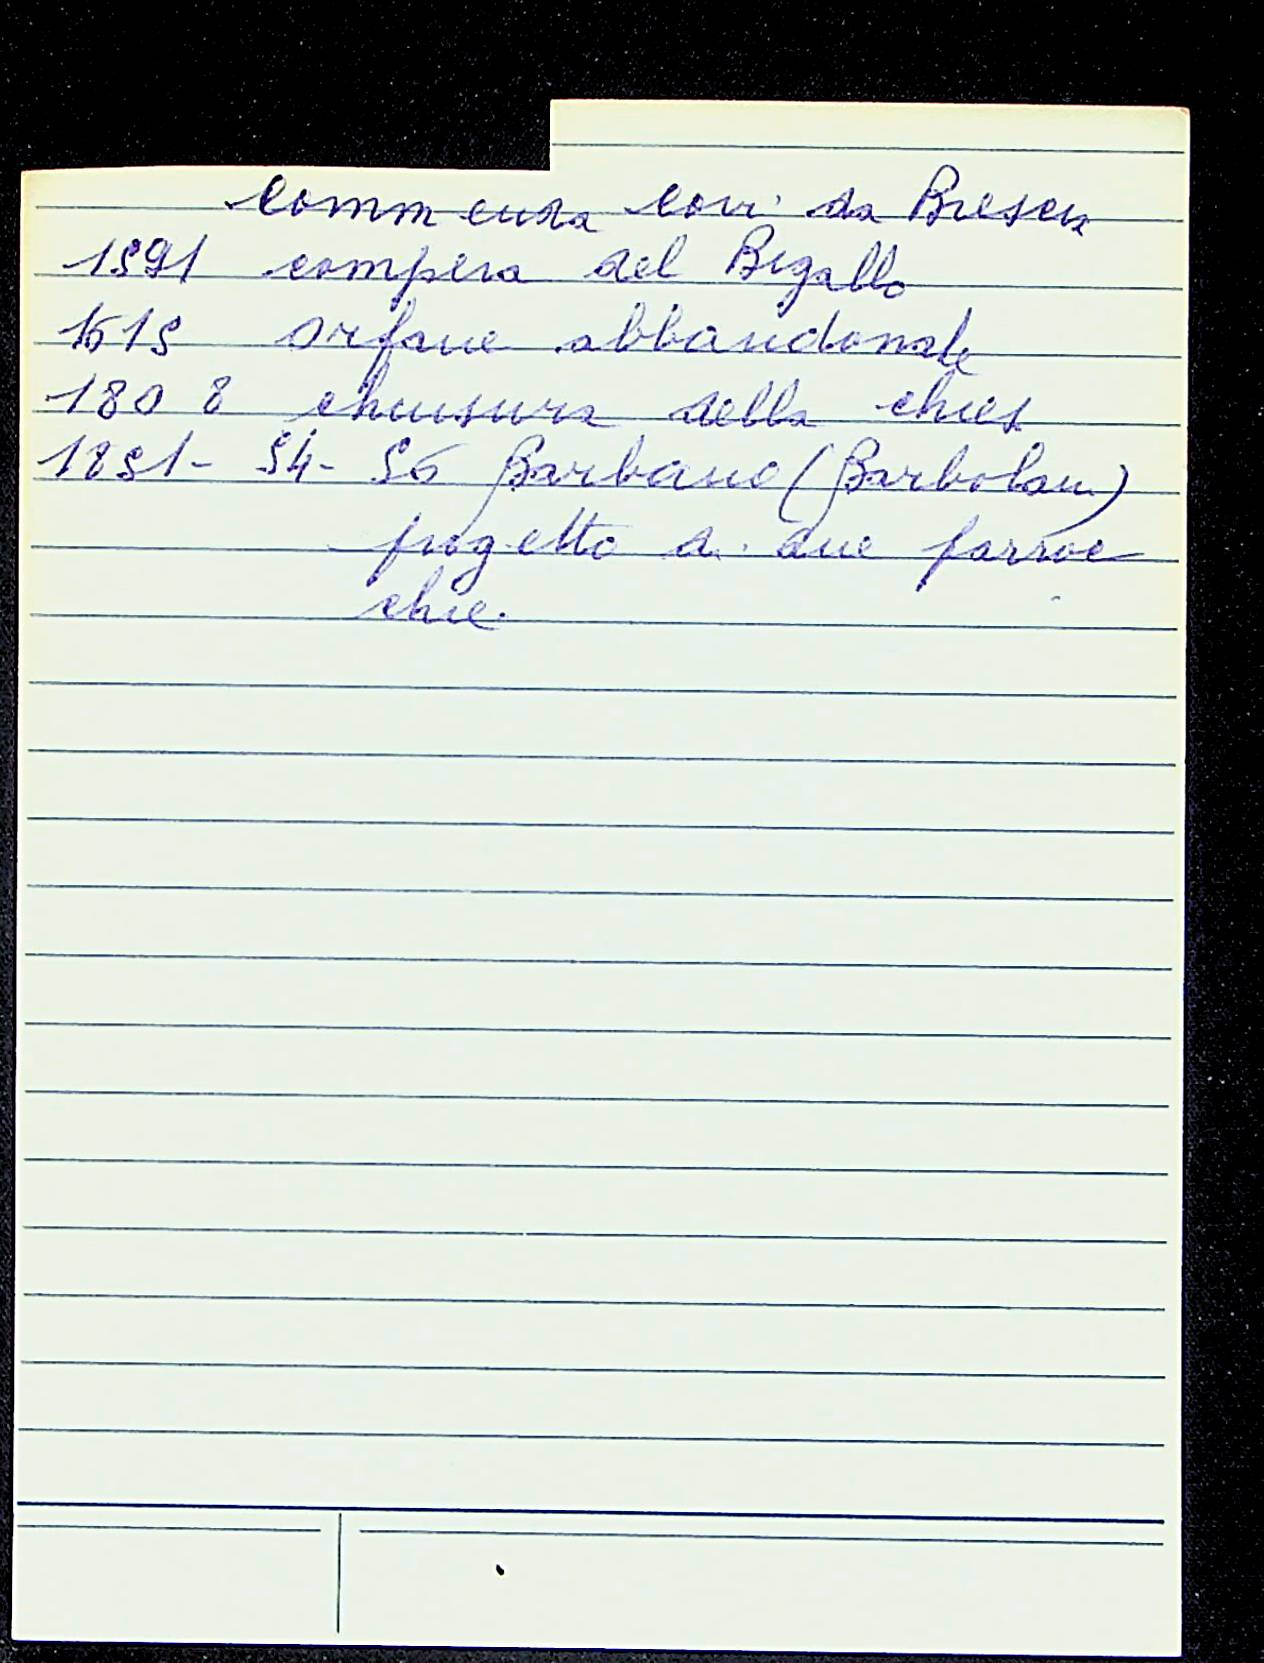 Commenda Covi da Brescia
1591 compera del Bigallo
1615 orfane abbandonate
1808 chiusura della chies
1851-54-56 Barbano (Barbolani)
progetto di due parroc
chie.